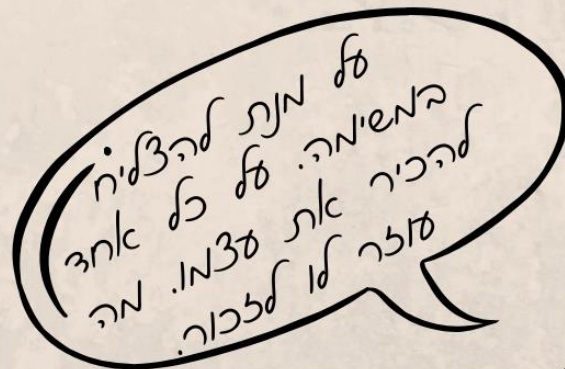 על מנת להצליח
במשימה. על כל אחד
להכיר את עצמו. מה
עוזר לו לזכור.